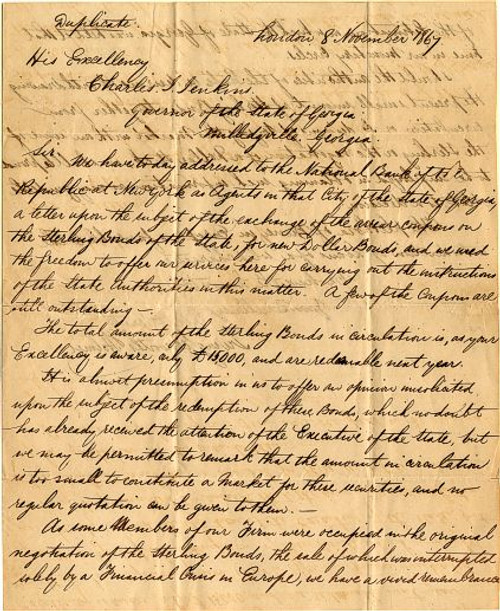 Duplicate.
London 8 November 1867
His Excellency
Charles J. Jenkins.
Governor of the State of Georgia
Milledgville Georgia.
Sir
We have to day addressed to the National Bank of the
Republic at New York as Agents in that City of the State of Georgia,
a letter upon the subject of the exchange of the arrear coupons on
the Sterling Bonds of the State, for new Dollar Bonds, and we used
the freedom to offer our services here for carrying out the instructions
of the State Authorities in this matter. A few of the Coupons are
still outstanding —
The total amount of the Sterling Bonds in circulation is, as your
Excellency is aware, only £15000, and are redeemable next year.
It is almost presumption in us to offer an opinion unsolicited
upon the subject of the redemption of these Bonds, which no doubt
has already received the attention of the Executive of the State, but
we may be permitted to remark that the amount in circulation
is too small to constitute a Market for these securities, and no
regular quotation can be given to them. —
As some Members of our Firm were occupied in the original
negotiation of the Sterling Bonds, the sale of which was interrupted
solely by a Financial Crisis in Europe, we have a vivid remembrance